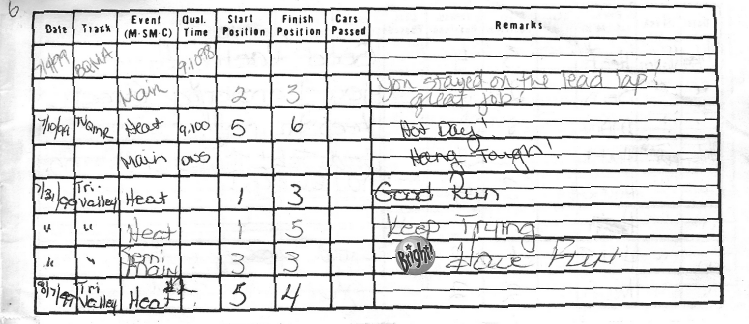 6
Date Track Event (M-SM-C) Qual. Time Start Position Finish Position Cars Passed Remarks
BQMA
Main 2 3 You stayed on the lead lap! great job!
7/10/99 TVQMR Heat 9.100 5 6 Hot Day!
Main DNS Hang Tough!
7/31/99 Tri-Valley Heat 1 3 Good Run
" " Heat 1 5 Keep Trying
" " Semi Main 3 3 Bright! Have Fun
8/7/99 Tri Valley Heat 5 4